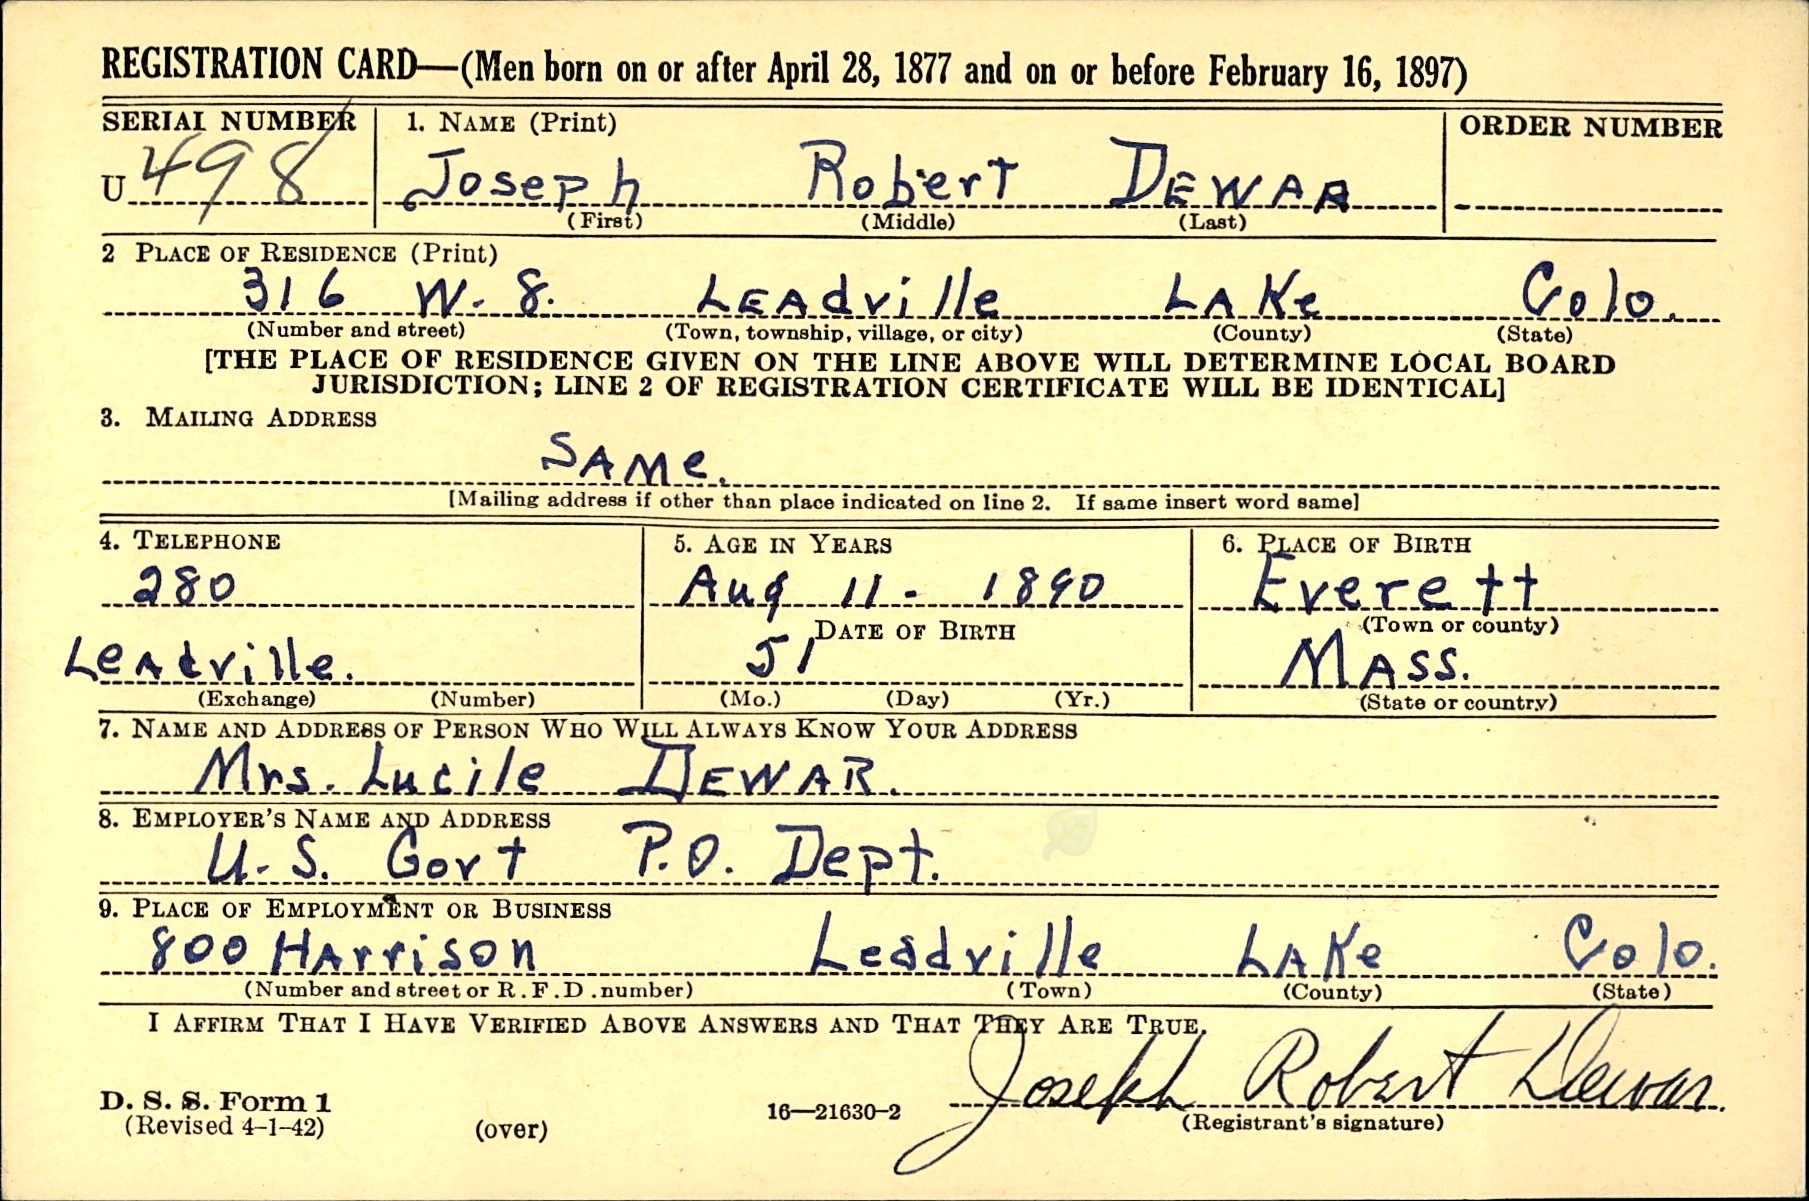 REGISTRATION CARD—(Men born on or after April 28, 1877 and on or before February 16, 1897)
SERIAL NUMBER 1. NAME (Print) ORDER NUMBER
U 498 Joseph Robert DEWAR
(First) (Middle) (Last)
2 PLACE OF RESIDENCE (Print)
316 W. 8. LEAdville LAKe Colo.
(Number and street) (Town, township, village, or city) (County) (State)
[THE PLACE OF RESIDENCE GIVEN ON THE LINE ABOVE WILL DETERMINE LOCAL BOARD
JURISDICTION; LINE 2 OF REGISTRATION CERTIFICATE WILL BE IDENTICAL]
3. MAILING ADDRESS
SAMe.
[Mailing address if other than place indicated on line 2. If same insert word same]
4. TELEPHONE 5. AGE IN YEARS 6. PLACE OF BIRTH
280 Aug 11 - 1890 Everett
DATE OF BIRTH (Town or county)
Leadville. 51 MASS.
(Exchange) (Number) (Mo.) (Day) (Yr.) (State or country)
7. NAME AND ADDRESS OF PERSON WHO WILL ALWAYS KNOW YOUR ADDRESS
Mrs. Lucile DEWAR.
8. EMPLOYER'S NAME AND ADDRESS
U.S. Govt P.O. Dept.
9. PLACE OF EMPLOYMENT OR BUSINESS
800 HArrison Leadville LAKe Colo.
(Number and street or R.F.D. number) (Town) (County) (State)
I AFFIRM THAT I HAVE VERIFIED ABOVE ANSWERS AND THAT THEY ARE TRUE.
Joseph Robert Dewar.
D. S. S. Form 1 16—21630-2 (Registrant's signature)
(Revised 4-1-42) (over)